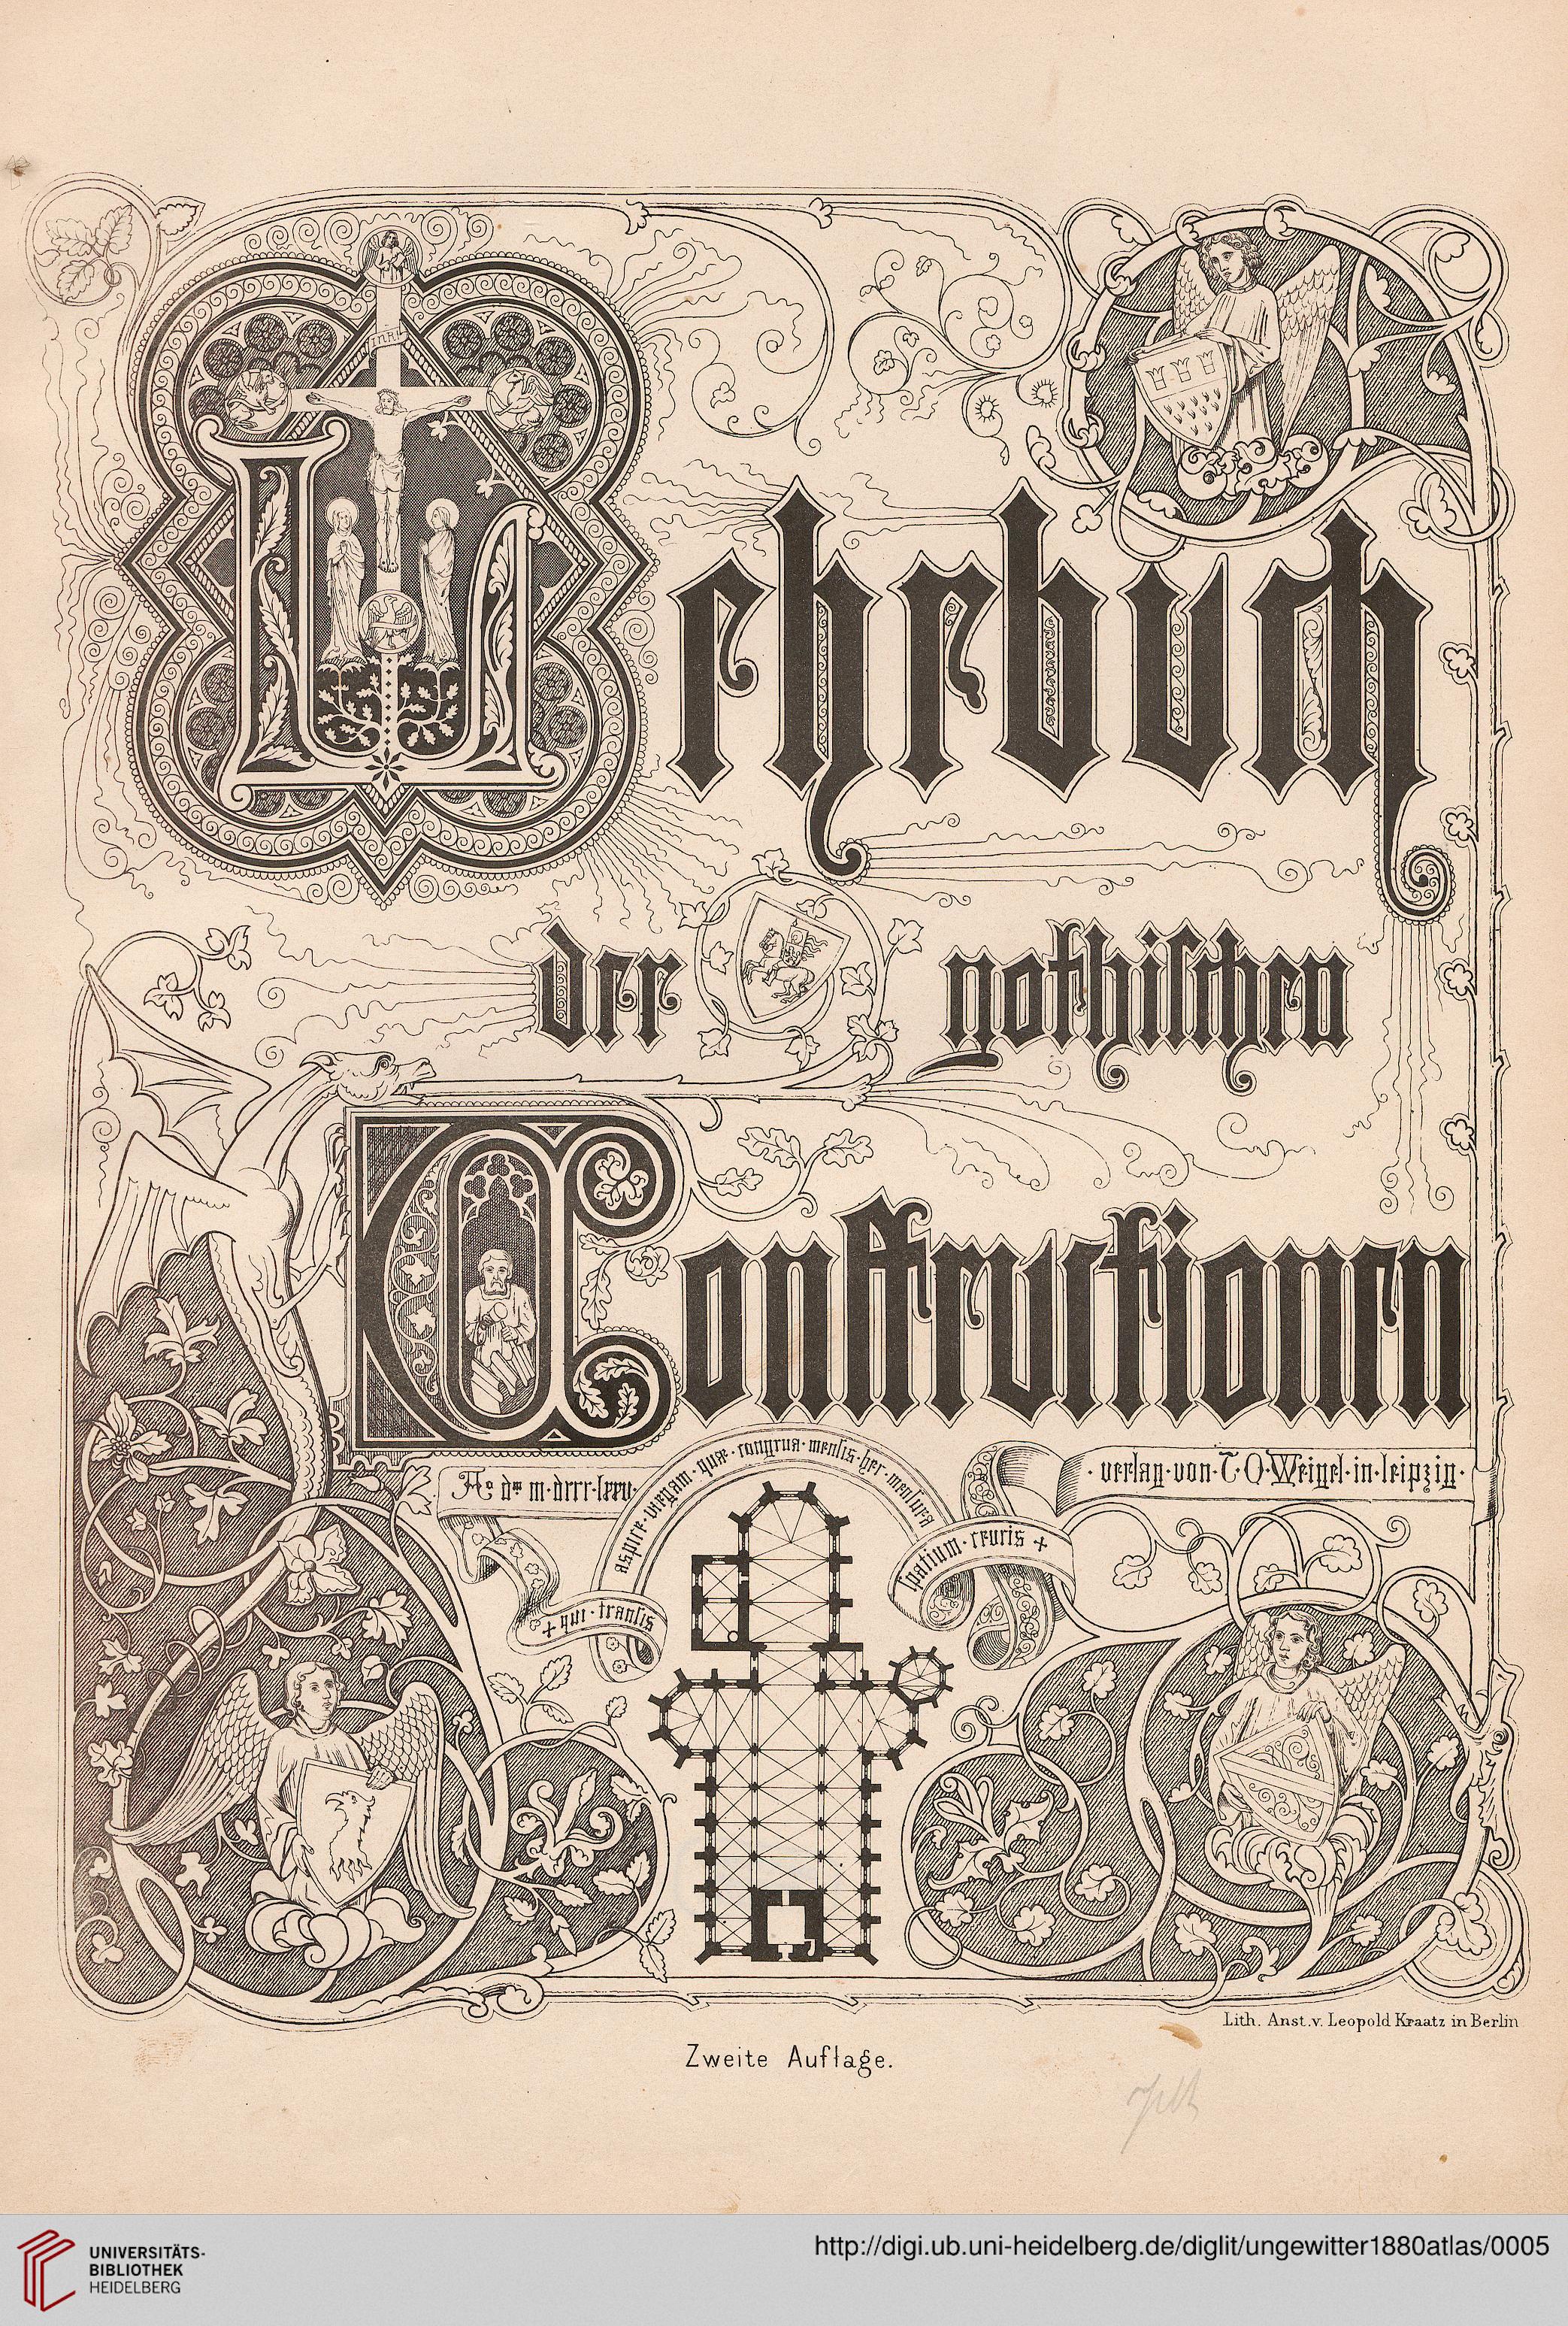 INRI
Lehrbuch
der gothischen
Constructionen
Aº dm m·dccc·lxxv·
· verlag·von·T·O·Weigel·in·leipzig·
+ qui·transis
aspice·viegam·quæ·congrua·mensis·her·mensura
spatium·crucis +
Lith. Anst.v. Leopold Kraatz in Berlin
Zweite Auflage.
UNIVERSITÄTS-
BIBLIOTHEK
HEIDELBERG
http://digi.ub.uni-heidelberg.de/diglit/ungewitter1880atlas/0005